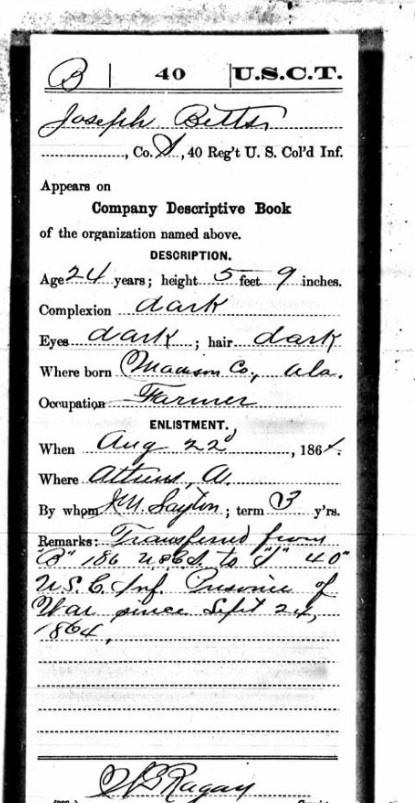 B | 40 | U.S.C.T.
Joseph Betts
, Co. , 40 Reg't U. S. Col'd Inf.
Appears on
Company Descriptive Book
of the organization named above.
DESCRIPTION.
Age 24 years; height 5 feet 9 inches.
Complexion dark
Eyes dark ; hair dark
Where born Madison Co., Ala.
Occupation Farmer
ENLISTMENT.
When Aug 22d , 1864.
Where
By whom ; term 3 y'rs.
Remarks: Transferred from
"B" to 40"
U.S.C. Inf. Prisoner of
War since Sept 24,
1864,
Ragan